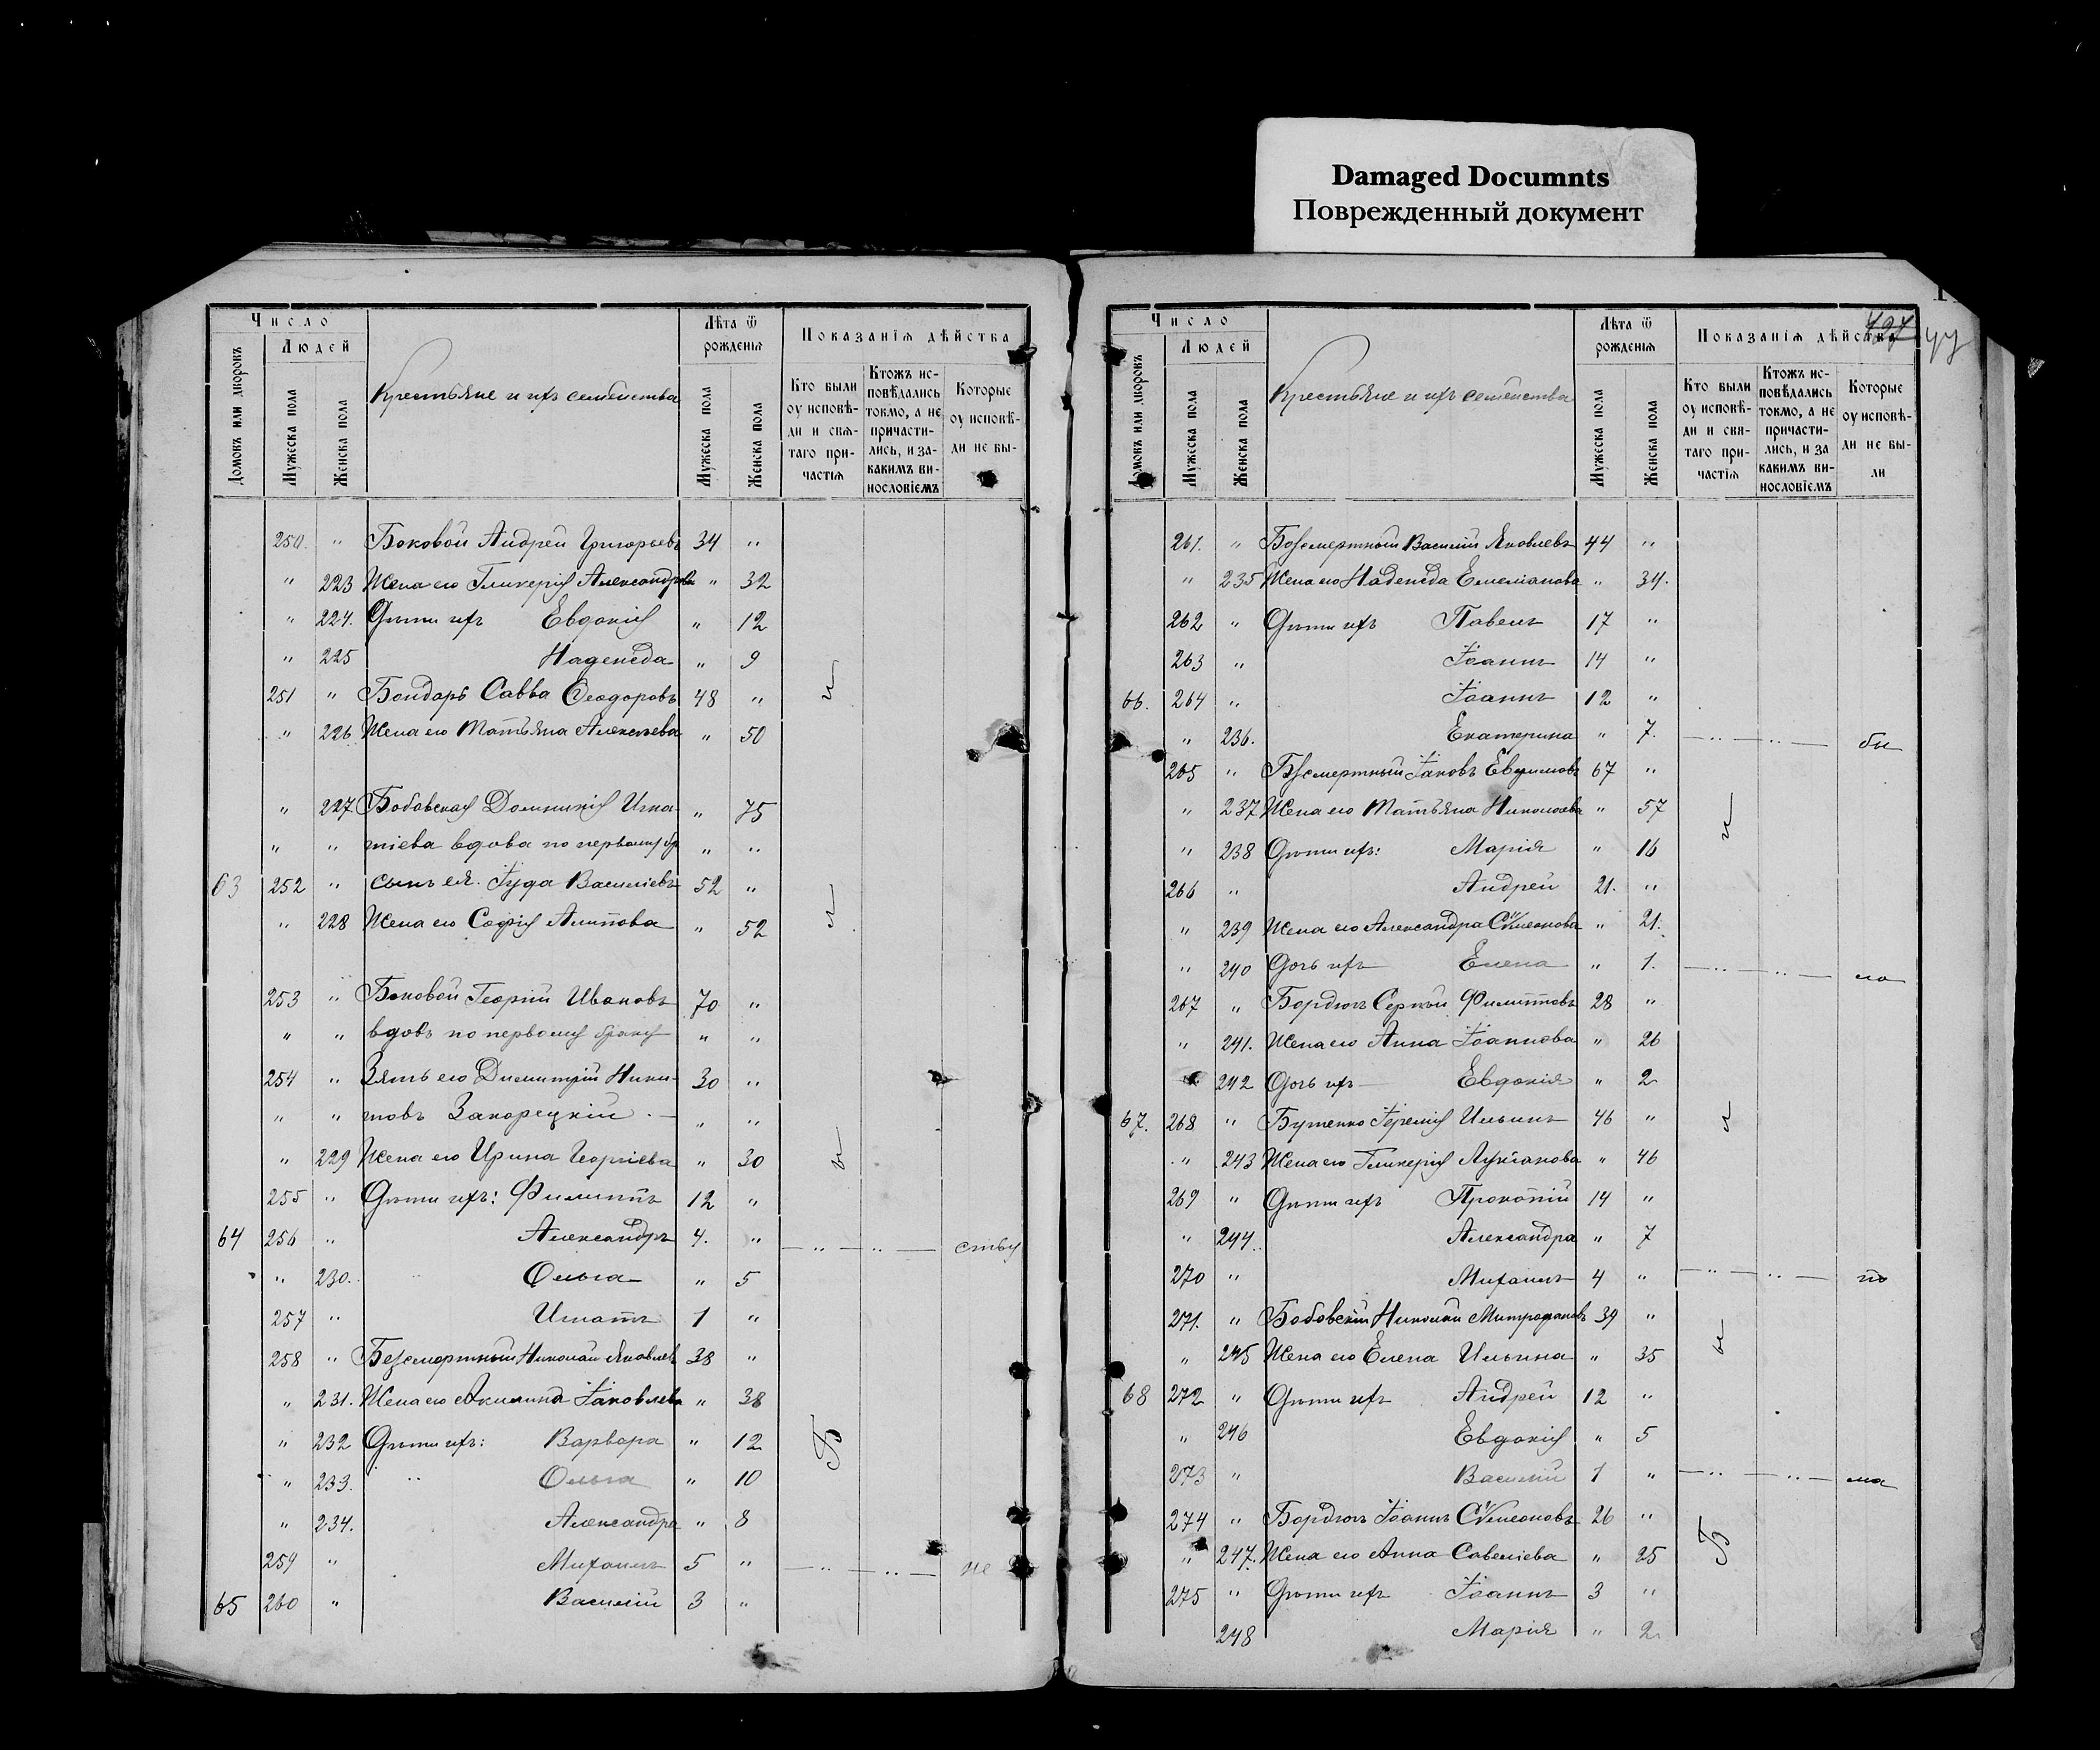 Damaged Documnts
Поврежденный документ
Число
Людей
Домовъ или дворовъ
Мужеска пола
Женска пола
Крестьяне и ихъ семейства
Лѣта ѿ рожденія
Мужеска пола
Женска пола
Показанія дѣйства
Кто были оу исповѣ-
ди и свя-
таго при-
частія
Ктожъ ис-
повѣдались
токмо, а не
причасти-
лись, и за-
какимъ ви-
нословіемъ
Которые
оу исповѣ-
ди не бы-
250. " Боковой Андрей Григорьевъ 34 "
" 223 Жена его Гликерія Александрова " 32
" 224. Дѣти ихъ Евдокія " 12
" 225 Надежда " 9
251 " Бондарь Савва Ѳеодоровъ 48 "
" 226 Жена его Татьяна Алексѣева " 50
" 227 Бобовская Домникія Игна- " 75
" " тіева вдова по первому бр " "
63 252 " сынъ ея Іуда Василіевъ 52 "
" 228 Жена его Софія " 52
253 " Боковой Георгій Ивановъ 70 "
" " вдовъ по первому браку " "
254 " Зять его Димитрій Ники- 30 "
" " товъ Закорецкій " "
" 229 Жена его Ирина Георгіева " 30
255 " Дѣти ихъ: Филиппъ 12 "
64 256 " Александръ 4. " — " — " — ству
" 230. Ольга " 5
257 " Игнатъ 1 "
258 " Безсмертный Николай Яковлевъ 38 "
" 231. Жена его Акилина Іаковлева " 38
" 232 Дѣти ихъ: Варвара " 12
" 233. Ольга " 10
" 234. Александра " 8
259 " Михаилъ 5 " — " — " — не
65 260 " Василій 3 "
Число
Людей
Домовъ или дворовъ
Мужеска пола
Женска пола
Крестьяне и ихъ семейства
Лѣта ѿ рожденія
Мужеска пола
Женска пола
Показанія дѣйства
Кто были
оу исповѣ-
ди и свя-
таго при-
частія
Ктожъ ис-
повѣдались
токмо, а не
причасти-
лись, и за
какимъ ви-
нословіемъ
Которые
оу исповѣ-
ди не бы-
ли
261. " Безсмертный Василій Яковлевъ 44 "
" 235 Жена его Надежда Емеліанова " 34.
262 " Дѣти ихъ Павелъ 17 "
263 " Іоаннъ 14 "
66. 264 " Іоаннъ 12 "
" 236. Екатерина " 7. — " — " — бы
265 " Безсмертный Іаковъ Евфимовъ 67 "
" 237 Жена его Татьяна Николаева " 57
" 238 Дѣти ихъ: Марія " 16
266 " Андрей 21. "
" 239 Жена его Александра Сѵмеонова " 21.
" 240 Дочь ихъ Елена " 1. — " — " — ло
267 " Бордюгъ Сергій Филипповъ 28 "
" 241. Жена его Анна Іоаннова " 26
" 242 Дочь ихъ Евдокія " 2
67. 268 " Бутенко Іеремія Ильинъ 46 "
" 243 Жена его Гликерія Лукіанова " 46
269 " Дѣти ихъ Прокопій 14 "
" 244. Александра " 7
270 " Михаилъ 4 " — " — " — по
271. " Бобовскій Николай Митрофановъ 39 "
" 245 Жена его Елена Ильина " 35
68 272 " Дѣти ихъ Андрей 12 "
" 246 Евдокія " 5
273 " Василій 1 " — " — " — ма
274 " Бордюгъ Іоаннъ Сѵмеоновъ 26 "
" 247. Жена его Анна Савеліева " 25
275 " Дѣти ихъ Іоаннъ 3 "
248 Марія " 2